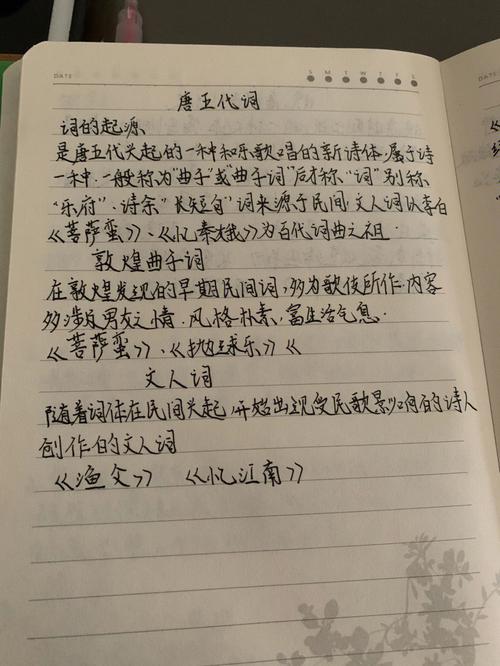 DATE
S M T W T F S
DATE
唐五代词
词的起源
是唐五代兴起的一种和乐歌唱的新诗体.属于诗
一种.一般称为"曲子"或"曲子词"后才称"词"别称
"乐府"、诗余"长短句"词来源于民间.文人词以李白
《菩萨蛮》、《忆秦娥》为百代词曲之祖.
敦煌曲子词
在敦煌发现的早期民间词,多为歌伎所作.内容
多涉及男女之情.风格朴素,富生活气息.
《菩萨蛮》、《抛球乐》《
文人词
随着词体在民间兴起,开始出现受民歌影响的诗人
创作的文人词
《渔父》 《忆江南》